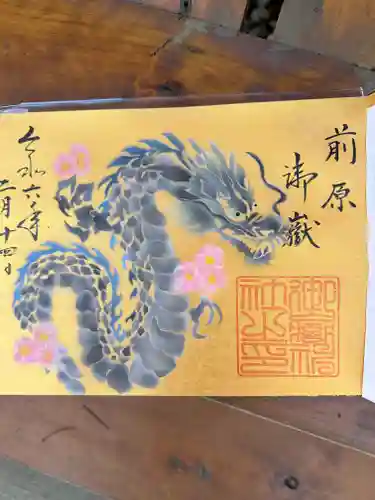 前原
御嶽
御嶽神社印
令和六年
二月十四日